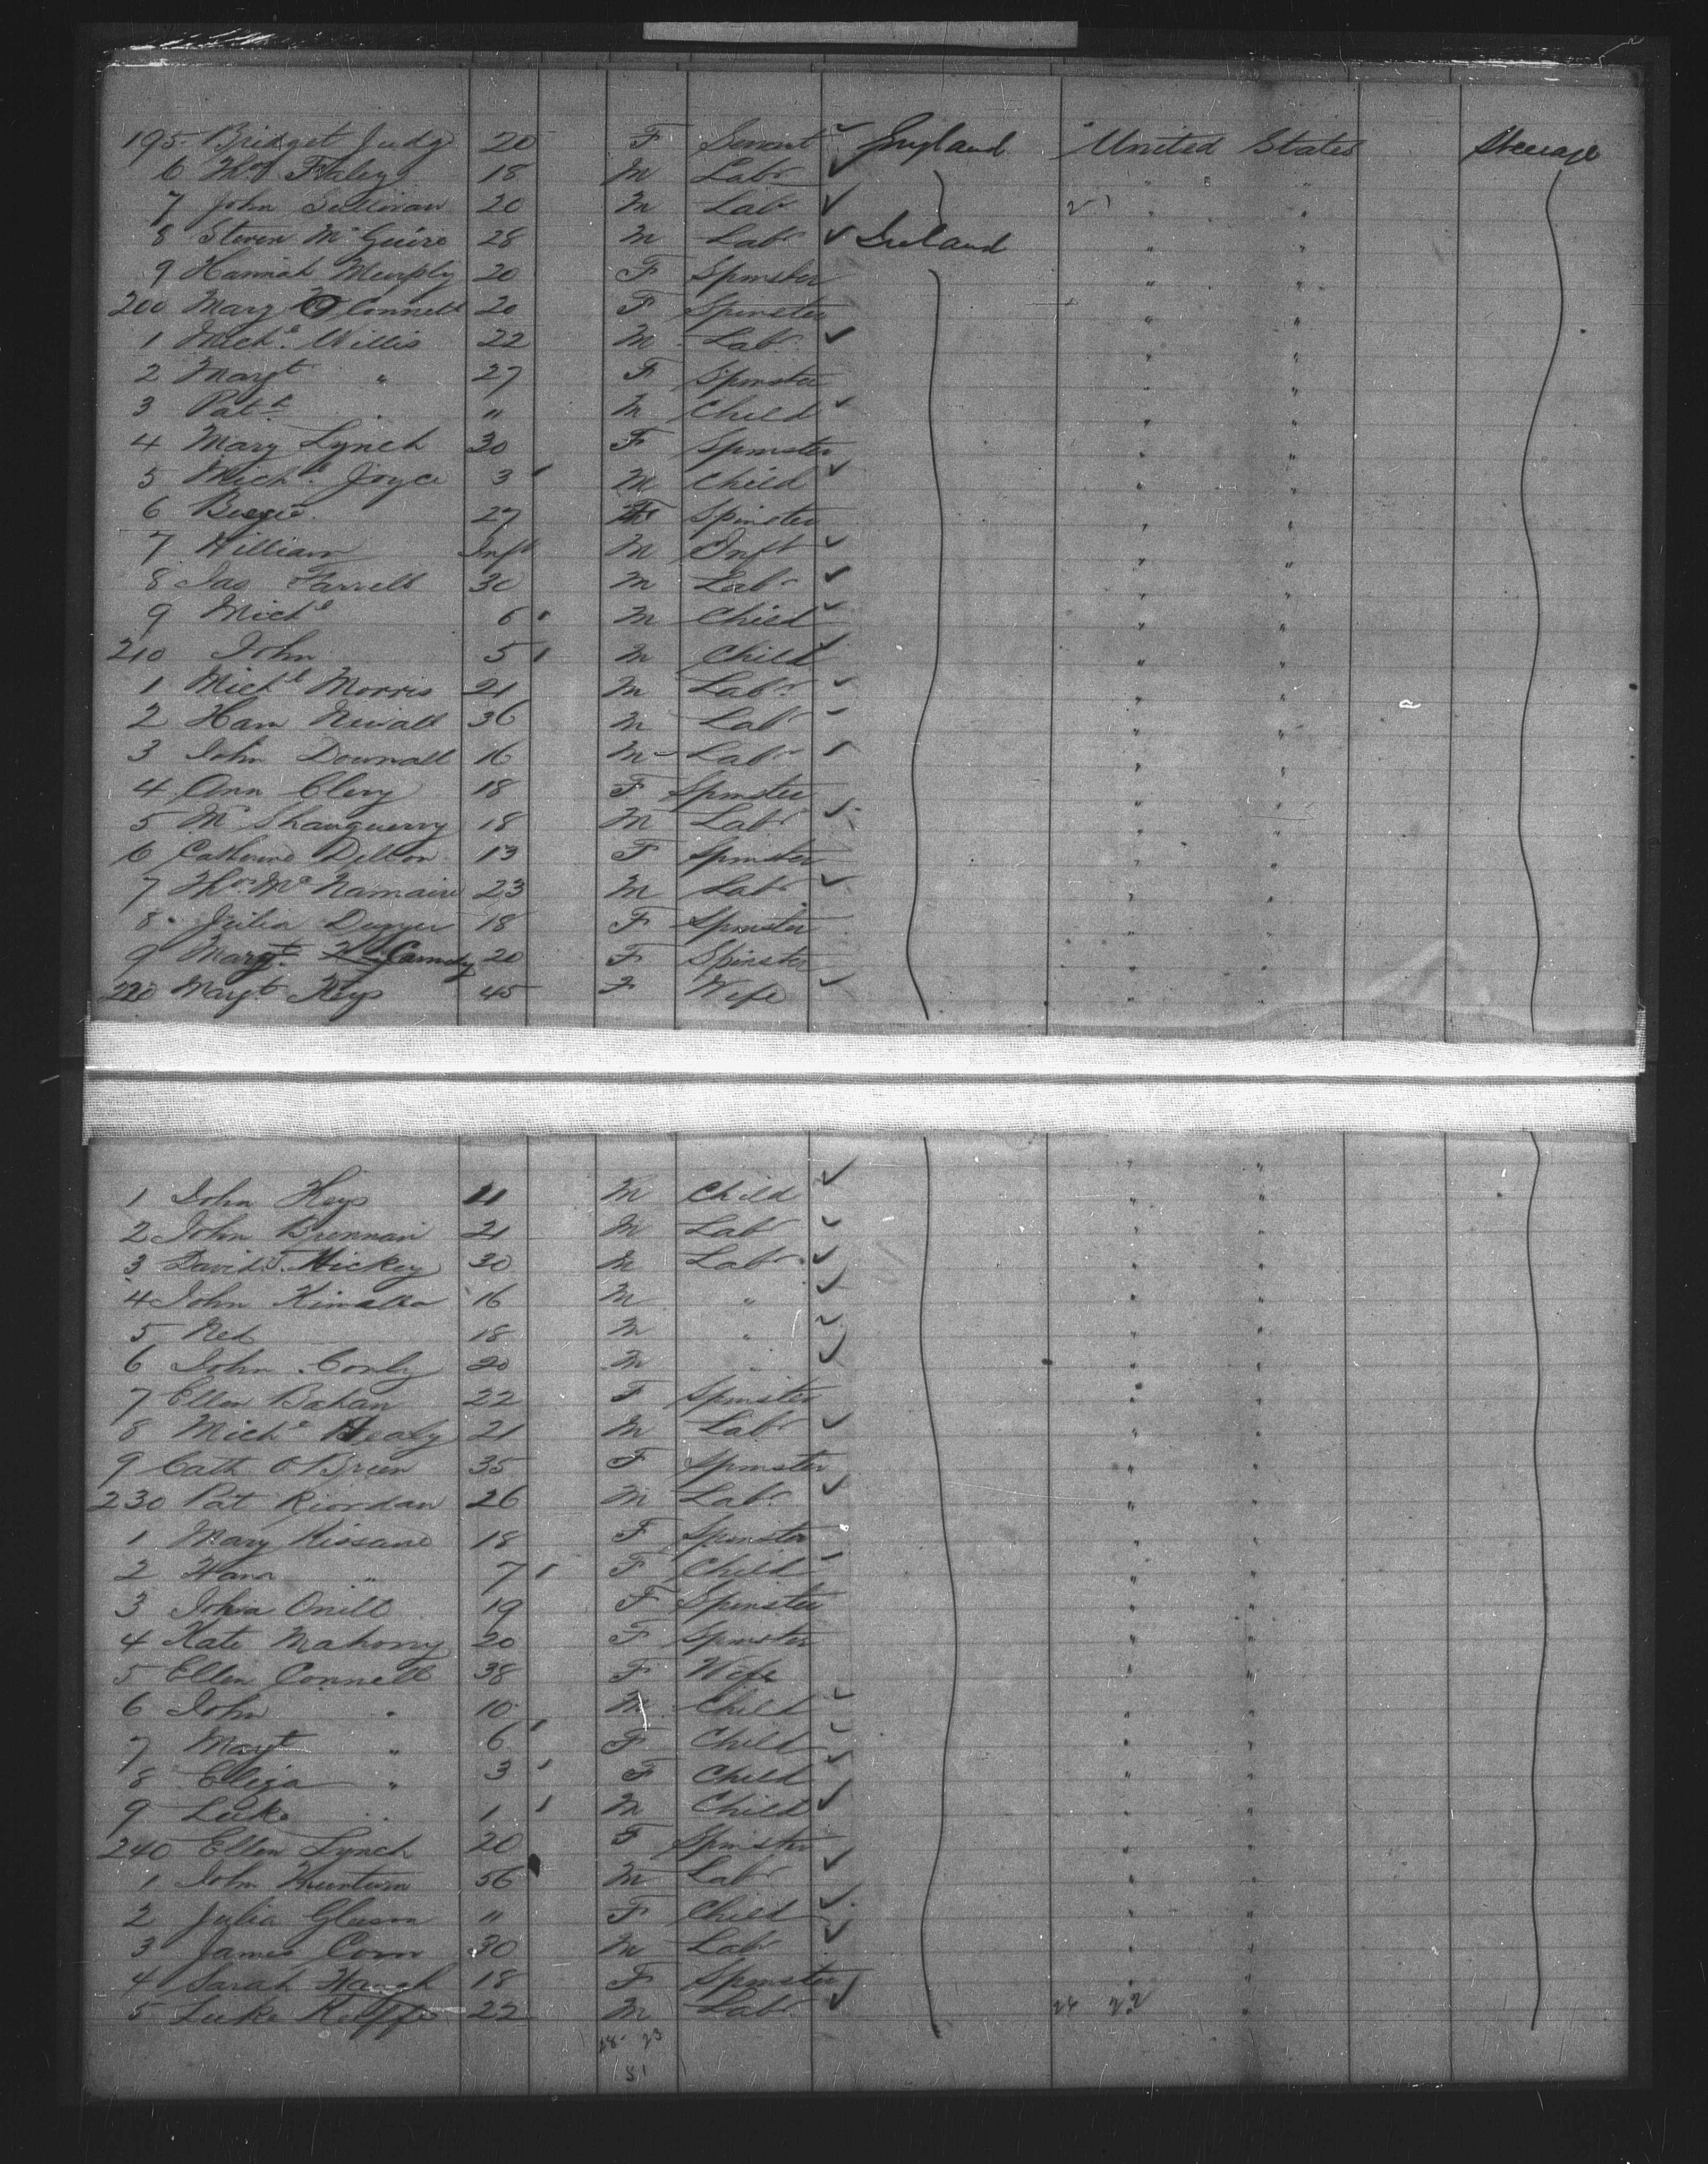 195 Bridget Judge 20 F Servant England United States Steerage
6 Thos Foley 18 M Labr " "
7 John Sullivan 20 M Lab " "
8 Steven McGuire 28 M Labr Ireland " "
9 Hannah Murphy 20 F Spinster " "
200 Mary O Connell 20 F Spinster " "
1 Michl Willis 22 M Labr " "
2 Margt " 27 F Spinster " "
3 Patk " " M Child " "
4 Mary Lynch 30 F Spinster " "
5 Michl Joyce 3 M Child " "
6 Bessie 27 F Spinster " "
7 William Inft M Inft " "
8 Jas Farrell 30 M Labr " "
9 Michl 6 M Child " "
210 John 5 M Child " "
1 Michl Morris 21 M Labr " "
2 Ham 36 M Labr " "
3 John Downall 16 M Labr " "
4 Ann Clery 18 F Spinster " "
5 M 18 M Labr " "
6 Catherine Dillon 13 F Spinster " "
7 Thos Mc Namaire 23 M Labr " "
8 Julia 18 F Spinster " "
9 Margt 20 F Spinster " "
220 Margt Keys 45 F Wife " "
1 John Keys 11 M Child " "
2 John Brennan 21 M Lab " "
3 David Hickey 30 M Labr " "
4 John Kimalla 16 M " " "
5 Ned 18 M " " "
6 John Conly 20 M " " "
7 Ellen Bahan 22 F Spinster " "
8 Michl Healy 21 M Labr " "
9 Cath O'Brien 35 F Spinster " "
230 Pat Riordan 26 M Labr " "
1 Mary Kissane 18 F Spinster " "
2 Hana " 7 F Child " "
3 Onill 19 F Spinster " "
4 Kate Mahony 20 F Spinster " "
5 Ellen Connell 38 F Wife " "
6 John " 10 M Child " "
7 Margt " 6 F Child " "
8 Eliza " 3 F Child " "
9 Luke " 1 M Child " "
240 Ellen Lynch 20 F Spinster " "
1 John 56 M Labr " "
2 Julia Gleeson " F Child " "
3 James Conn 30 M Lab " "
4 Sarah Haugh 18 F Spinster " "
5 Luke 22 M Labr 24 22 "
28 23
51